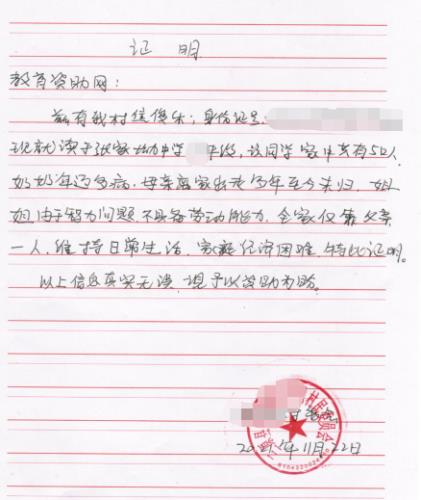 证明
教育资助网：
兹有我村侯俊乐，身份证号：
现就读于张家坳中学 年级，该同学家中共有5口人，
奶奶年迈多病，母亲离家出走多年至今未归，姐
姐由于智力问题不具备劳动能力，全家仅靠父亲
一人，维持日常生活，家庭经济困难，特此证明。
以上信息真实无误，望予以资助为盼。
村委会
村民委员会
11月22日